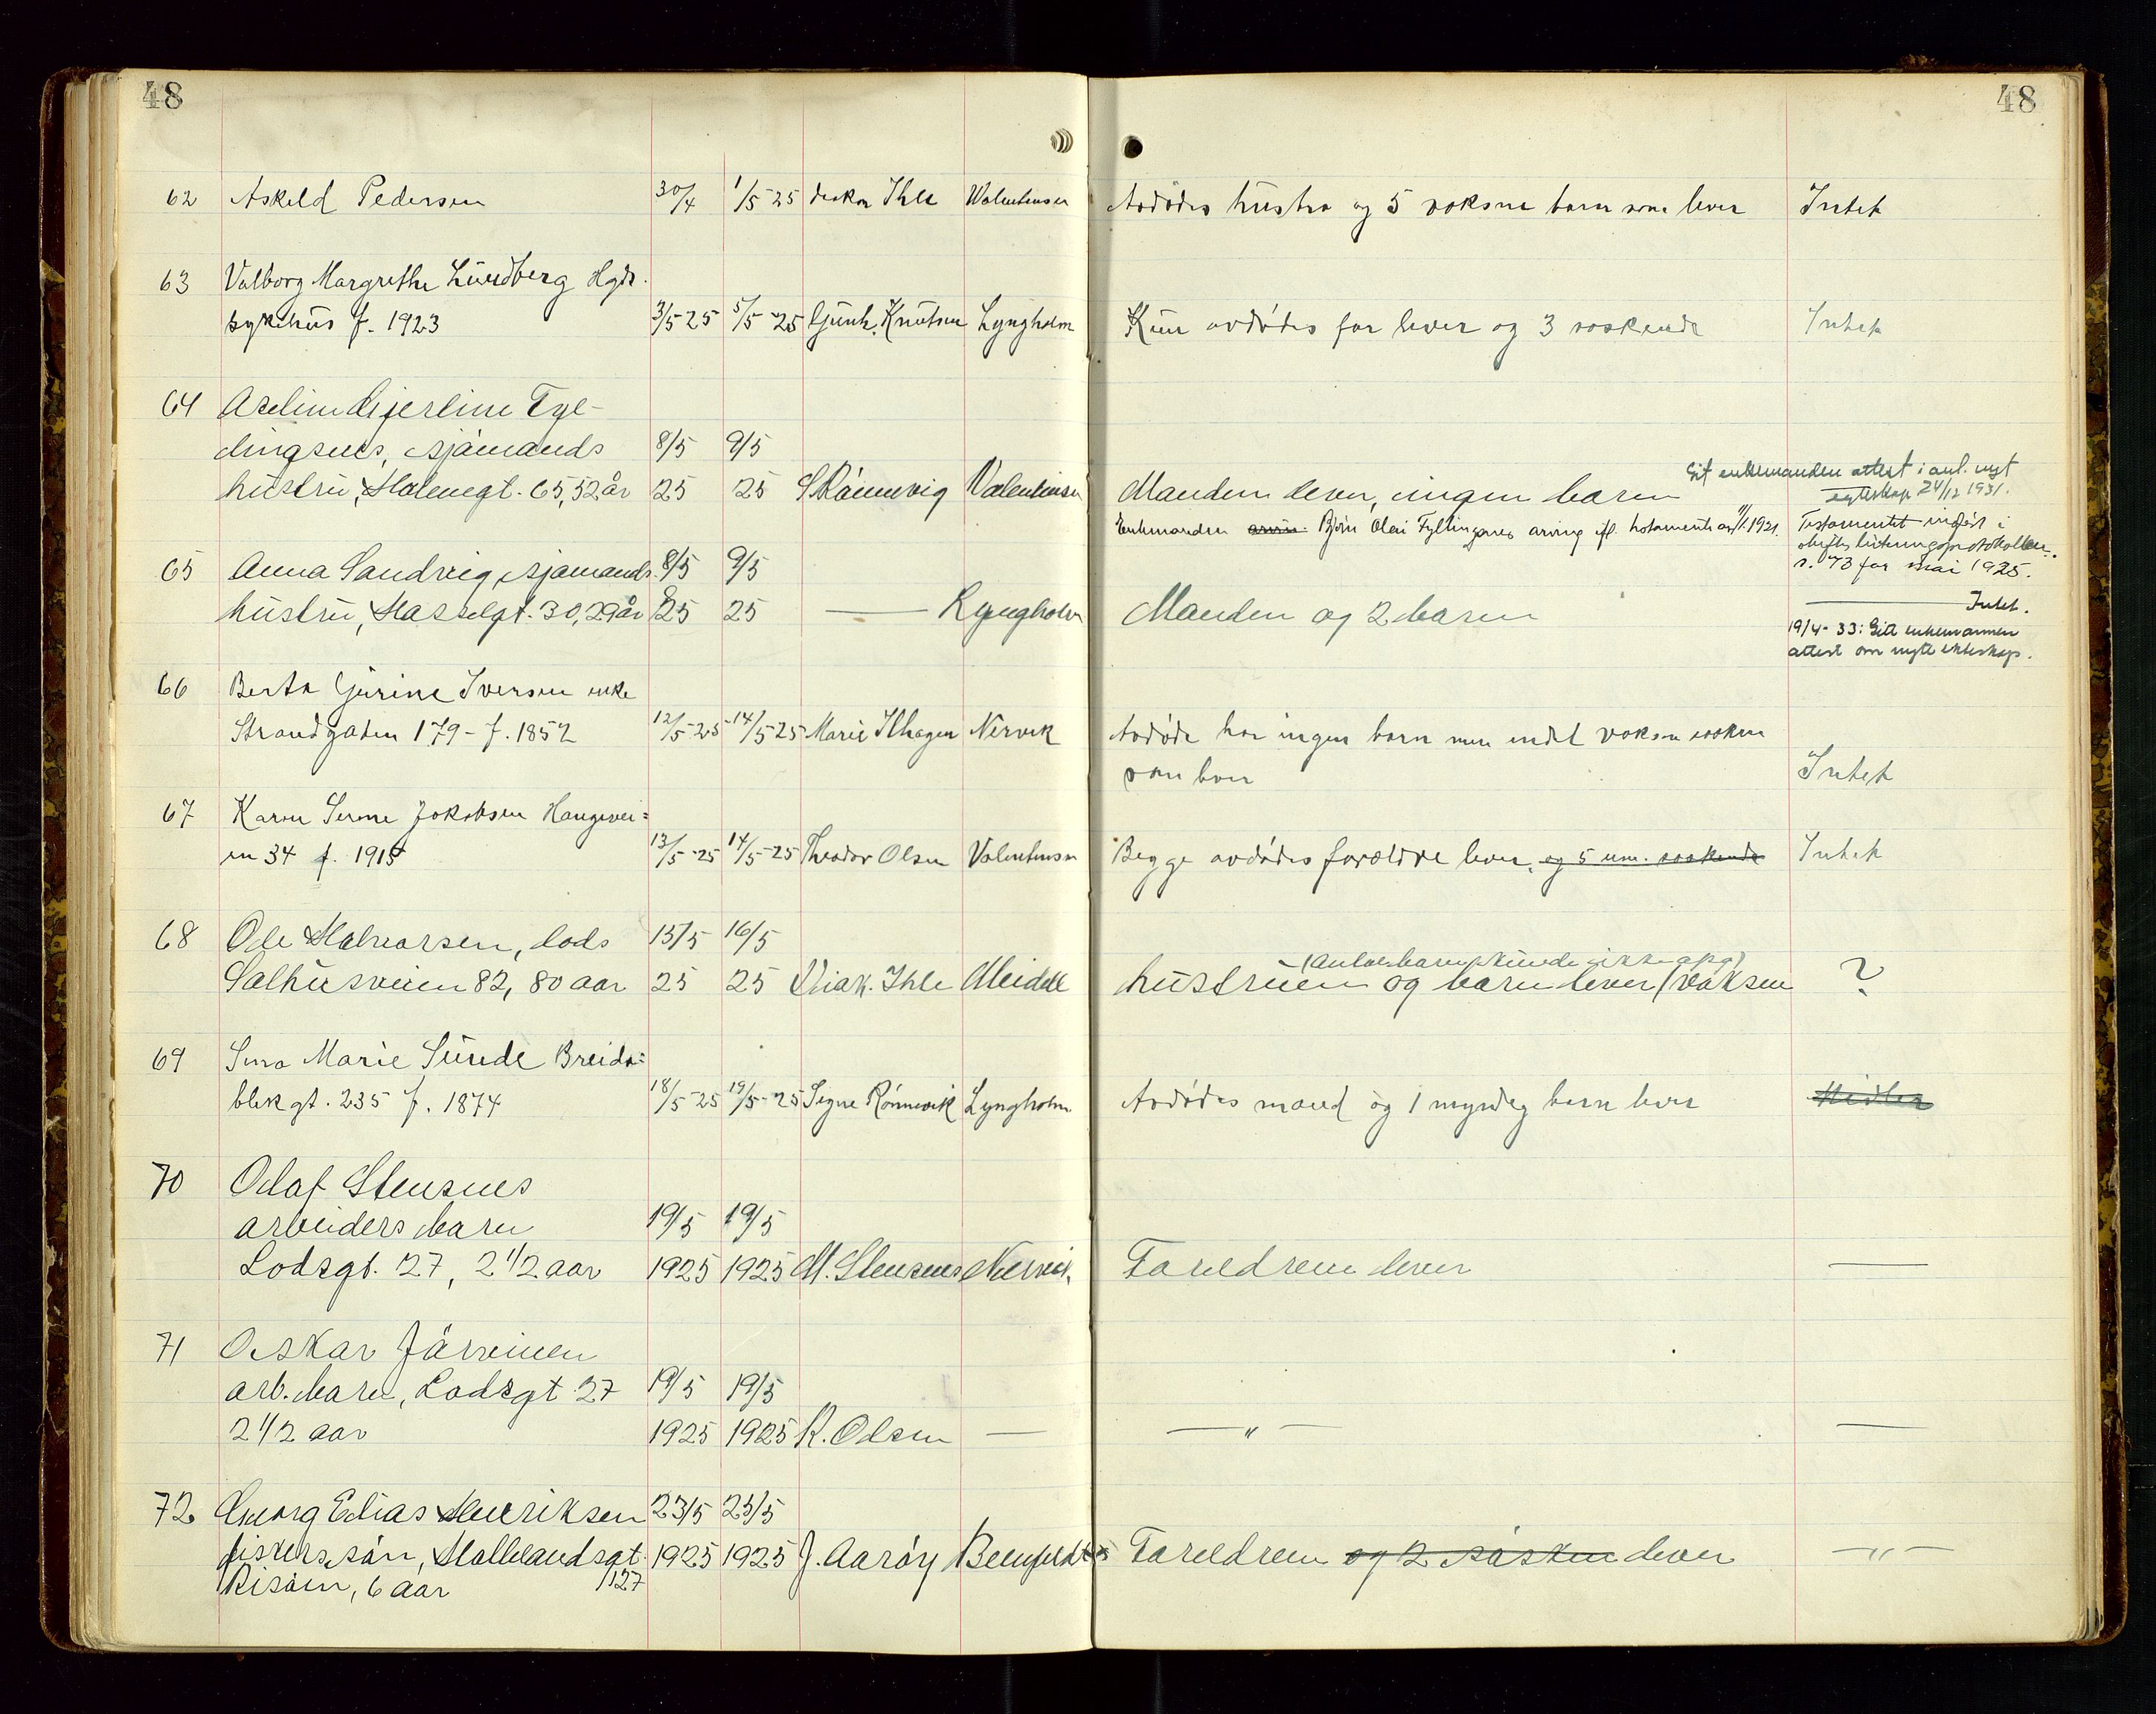 48
48
62 Askeld Pedersen 30/4 1/5-25 diakon Ihle Valentinsen Avdødes hustru og 5 voksne barn som lever Intet
63 Valborg Margrethe Lundberg Hgds.
sykehus f. 1923 3/5-25 5/5-25 Gunh. Knutsen Lyngholm Kun avdødes far lever og 3 søskende Intet
64 Aseline Gjerline Fyl-
lingsnes, sjømands 8/5 9/5
hustru, Halenegt. 65, 52 år 25 25 S Rønnevig Valentinsen Manden lever, ingen barn
Git enkemanden attest i anl. nyt
egteskap 24/12 1931.
Enkemanden Bjørn Olai Fyllingsnes arving ifl. testamente av 11/1. 1921.
Testamentet indført i
s. 73 for mai 1925.
65 Anna Sandvig, sjømands 8/5 9/5
hustru, Hasselgt. 30, 29 år 25 25 — Lyngholm Manden og 2 barn
— Intet.
19/4-33: Gitt enkemannen
attest om nytt ekteskap.
66 Berta Gurine Iversen enke
Strandgaten 179 - f. 1852 12/5-25 14/5-25 Marie Ilhagen Nervik Avdøde har ingen barn men endel voksne søsken
som lever Intet
67 Karen Serine Jokobsen Haugevei=
en 34 f. 1915 13/5-25 14/5-25 Theodor Olsen Valentinsen Begge avdødes forældre lever, og 5 um. søskende Intet
68 Ole Halvorsen, lods 15/5 16/5
Salhusveien 82, 80 aar 25 25 Diak. Ihle Meidell hustruen og barn lever (voksen ?
(antal barn kunde ikke opg)
69 Marie Sunde Breida=
blikgt. 235 f. 1874 18/5-25 19/5-25 Signe Rønnevik Lyngholm Avdødes mand og 1 myndig barn lever Midler
70 Olaf Stensnes
arbeiders barn 19/5 19/5
Lodsgt. 27, 2 1/2 aar 1925 1925 M. Stensnes Nervik. Foreldrene lever —
71 Oskar Järvinen
arb. barn, Lodsgt 27 19/5 19/5
2 1/2 aar 1925 1925 K. Olsen — — " — —
72 Georg Elias Henriksen 23/5 25/5
fiskers søn, Hallelandsgt. 1925 1925 J. Aarøy Foreldrene og 2 søsken lever — " —
Risøen, 6 aar /127